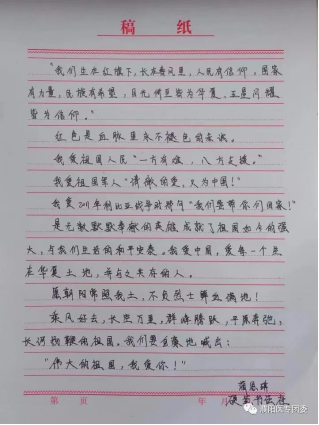 稿 纸
"我们生在红旗下,长在春风里,人民有信仰,国家
有力量,民族有希望,目光所至皆为华夏,五星闪耀
皆为信仰。"
红色是血脉里永不褪色的
我爱祖国人民"一方有难,八方支援。"
我爱祖国军人"清澈的爱,只为中国!"
我爱2011年利比亚战争时那句"我们要带你们回家!"
是无数默默奉献的英雄成就了祖国如今的强
大,与我们生活的和平安泰。我爱中国,爱每一个生
在华夏土地,并与之共存的人。
愿朝阳常照我土,不负烈士鲜血满地!
乘风好去,长空万里,群峰腾跃,平原奔驰,
长河的祖国。我们要自豪地喊出:
"伟大的祖国,我爱你!"
第 页 年 月
濮阳医专团委